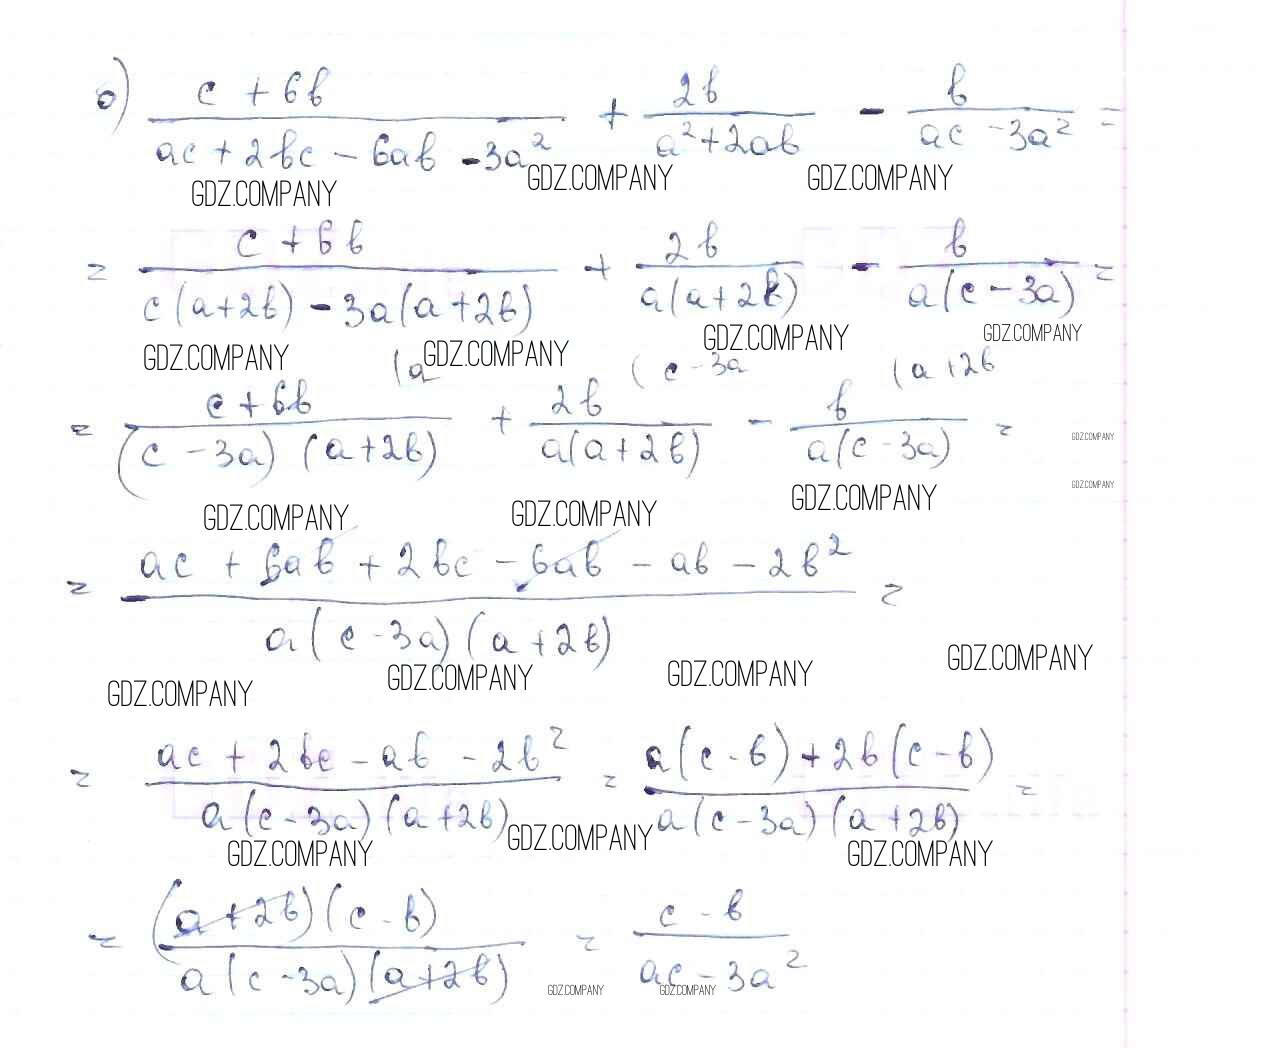 б) (c + 6b)/(ac + 2bc - 6ab - 3a²) + 2b/(a² + 2ab) - b/(ac - 3a²) =
GDZ.COMPANY GDZ.COMPANY GDZ.COMPANY
= (c + 6b)/(c(a+2b) - 3a(a+2b)) + 2b/(a(a+2b)) - b/(a(c-3a)) =
GDZ.COMPANY GDZ.COMPANY GDZ.COMPANY GDZ.COMPANY
(a (c-3a (a+2b
= (c+6b)/((c-3a)(a+2b)) + 2b/(a(a+2b)) - b/(a(c-3a)) =
GDZ.COMPANY
GDZ.COMPANY
GDZ.COMPANY GDZ.COMPANY GDZ.COMPANY
= (ac + 6ab + 2bc - 6ab - ab - 2b²)/(a(c-3a)(a+2b)) =
GDZ.COMPANY GDZ.COMPANY GDZ.COMPANY GDZ.COMPANY
= (ac + 2bc - ab - 2b²)/(a(c-3a)(a+2b)) = (a(c-b) + 2b(c-b))/(a(c-3a)(a+2b)) =
GDZ.COMPANY GDZ.COMPANY GDZ.COMPANY
= ((a+2b)(c-b))/(a(c-3a)(a+2b)) = (c-b)/(ac-3a²)
GDZ.COMPANY GDZ.COMPANY